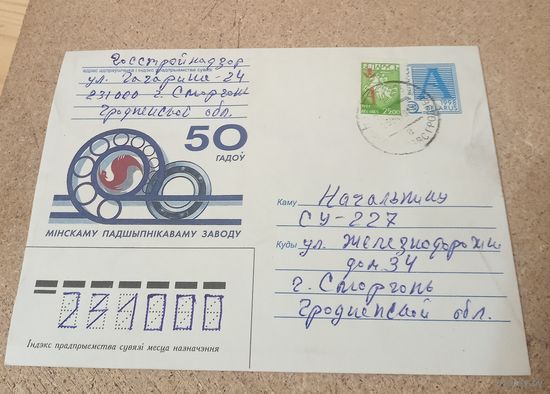 Госстройнадзор
адрас адпраўшчыка і індэкс прадпрыемства сувязі
ул. Гагарина-24
231000 г. Сморгонь
Гродненской обл.
50
ГАДОЎ
МІНСКАМУ ПАДШЫПНІКАВАМУ ЗАВОДУ
БЕЛАРУСЬ
А
Каму Начальнику
СУ-227
Куды ул. Железнодорожн
дом 34
г. Сморгонь
Гродненской обл.
231000
Індэкс прадпрыемства сувязі месца назначэння